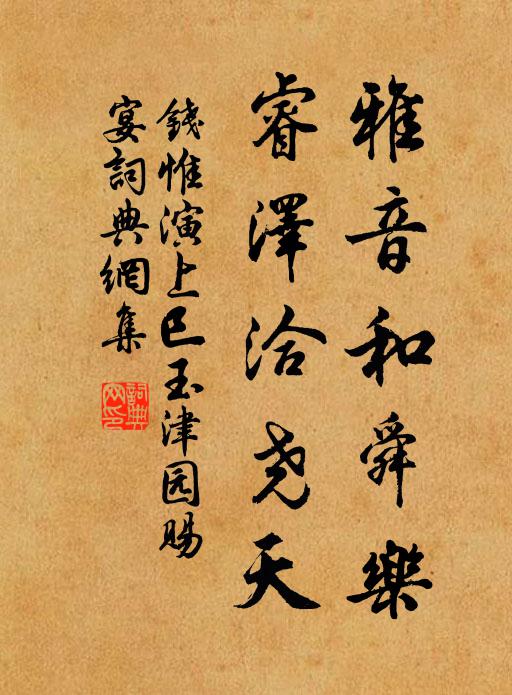 雅音和舜樂
睿澤洽尧天
錢惟演上巳玉津园賜
宴詞典網集
詞典网印